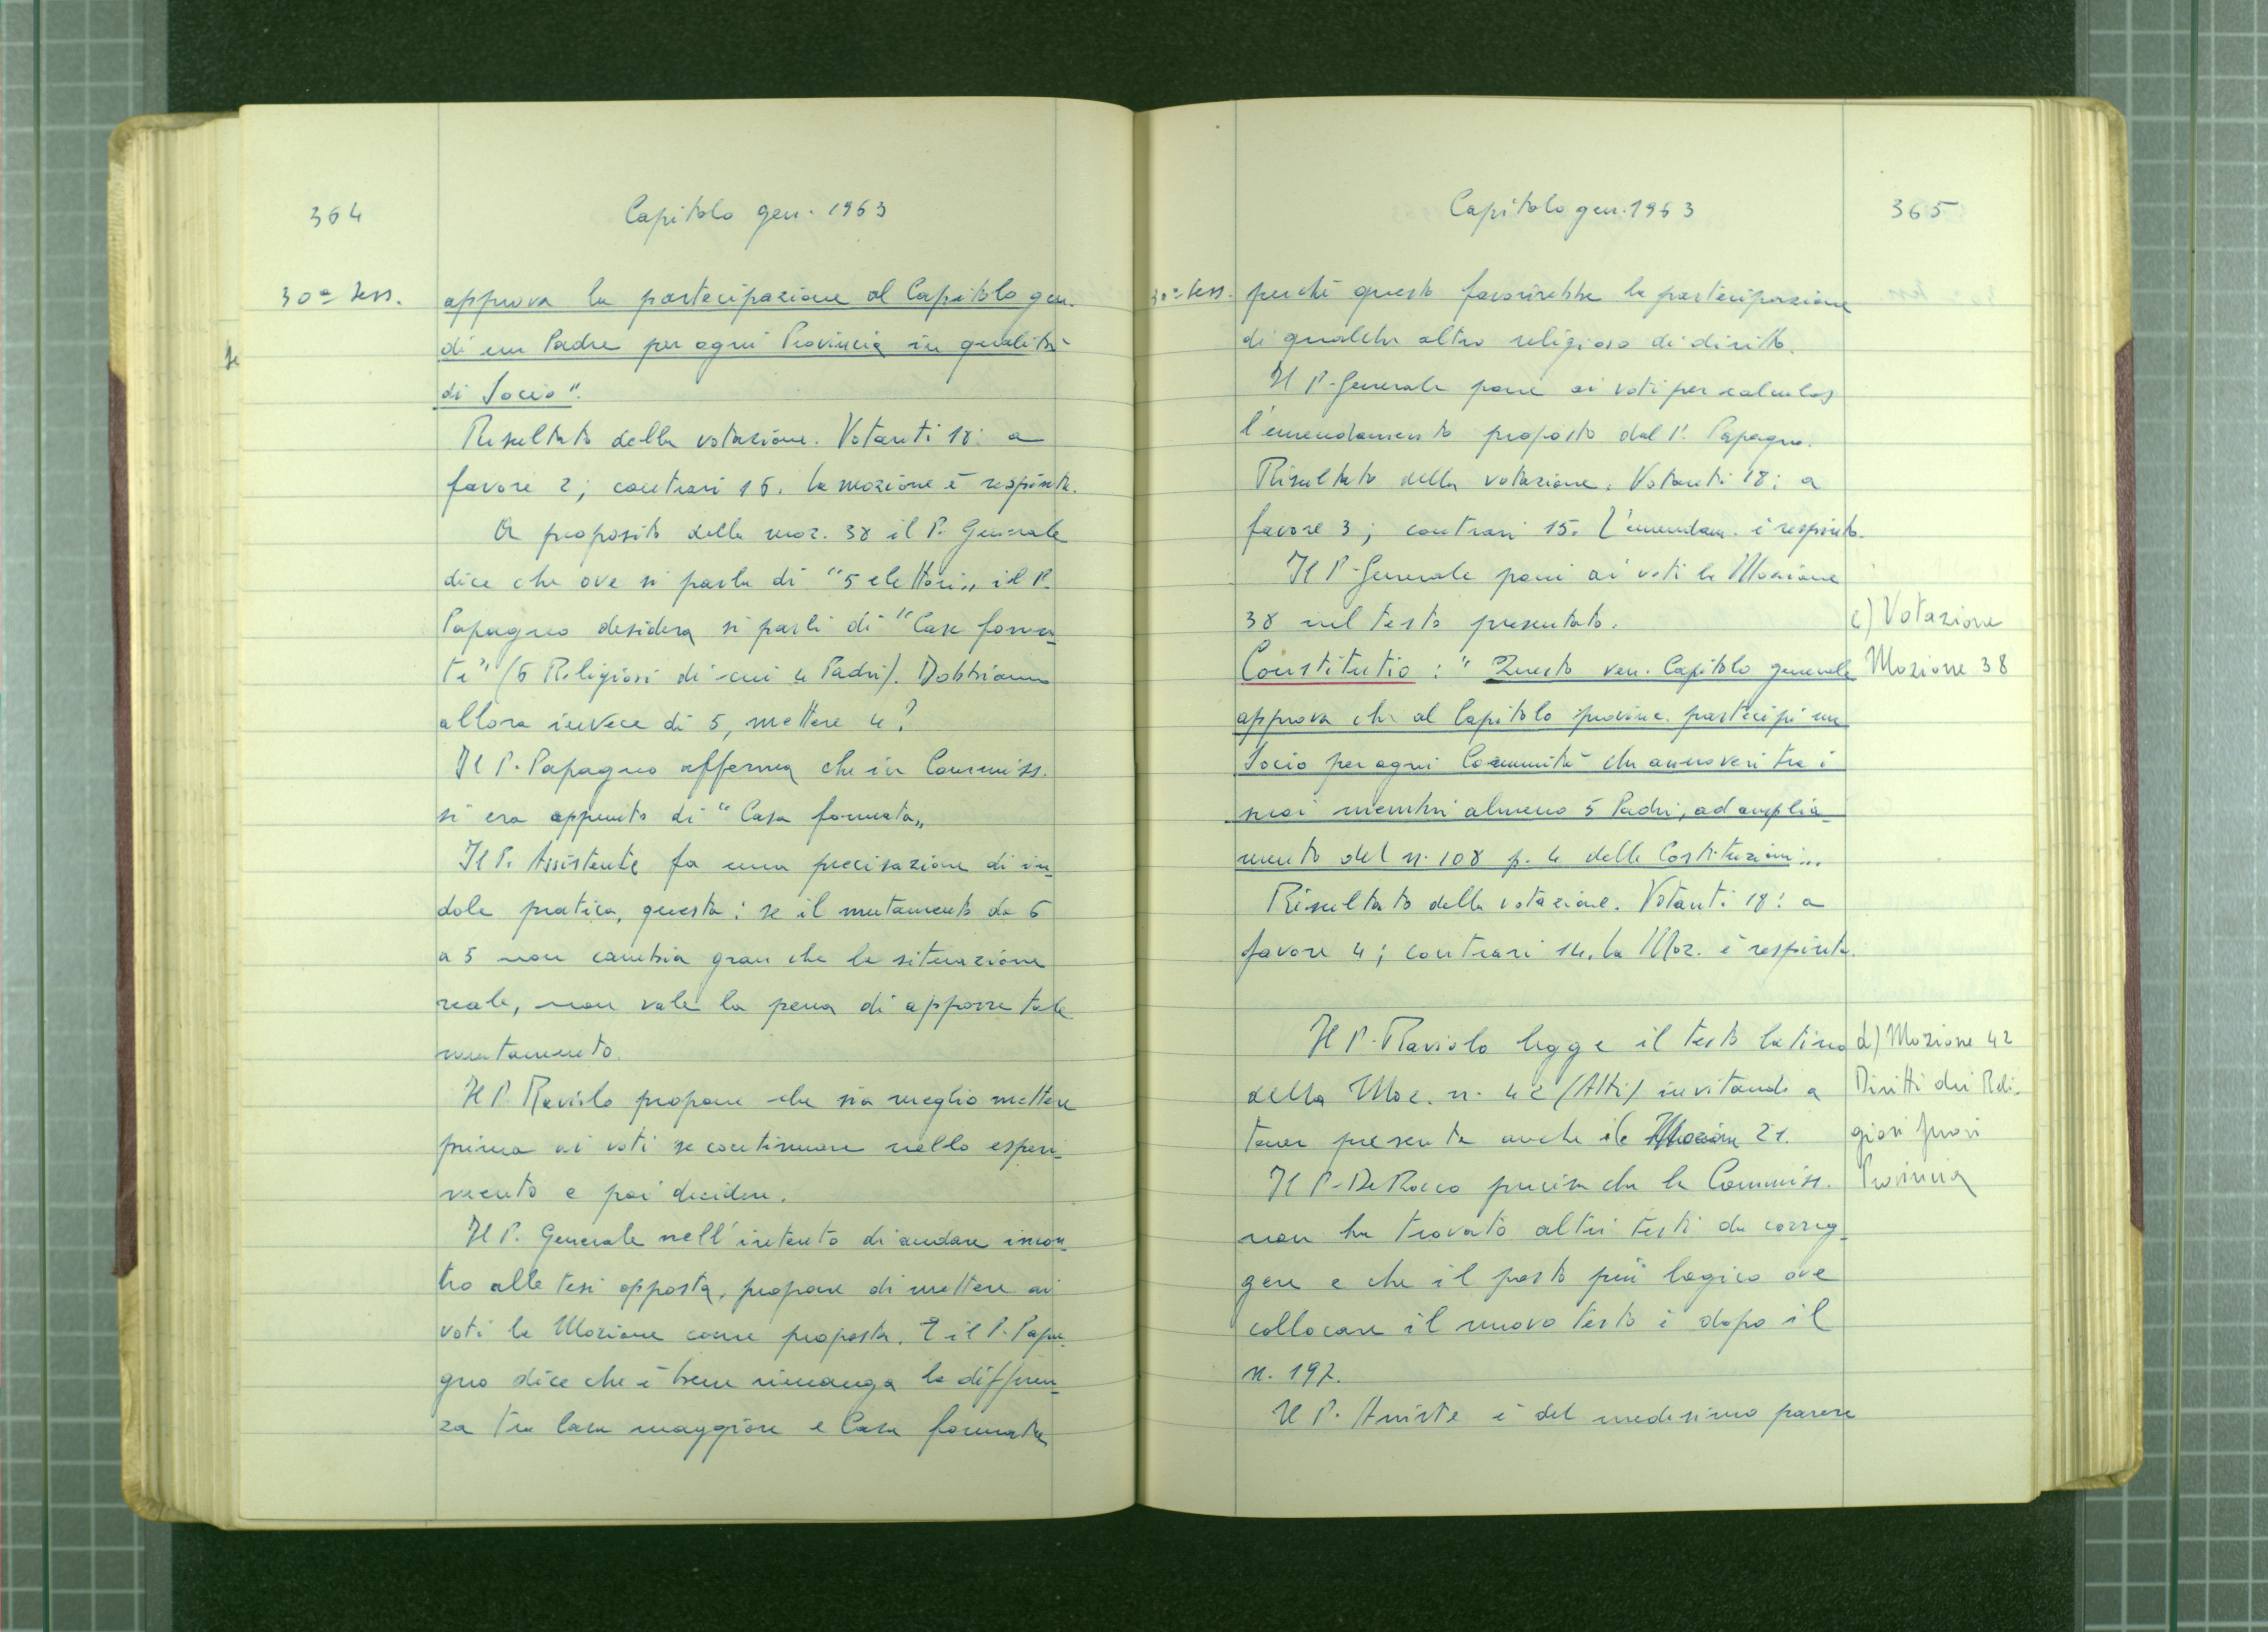 364
Capitolo gen. 1963
30ª Sess.
approva la partecipazione al Capitolo gen.
di un Padre per ogni Provincia in qualità
di Socio".
Risultato della votazione. Votanti 18: a
favore 2; contrari 16. La mozione è respinta.
A proposito della moz. 38 il P. Generale
dice che ove si parla di "5 elettori" il P.
Papagno desidera si parli di "Case forma-
te" (6 Religiosi di cui 4 Padri). Dobbiamo
allora invece di 5, mettere 4?
Il P. Papagno afferma che in Commiss.
si era appunto di "Casa formata"
Il P. Assistente fa una precisazione di in-
dole pratica, questa: se il mutamento da 6
a 5 non cambia gran che la situazione
reale, non vale la pena di apporre tale
mutamento.
Il P. Raviolo propone che sia meglio mettere
prima ai voti se continuare nello esperi-
mento e poi decidere.
Il P. Generale nell'intento di andare incon-
tro alle tesi opposta, propone di mettere ai
voti la Mozione come proposta. E il P. Papa-
gno dice che è bene rimanga la differen-
za tra Casa maggiore e Casa formata
Capitolo gen. 1963
365
30ª Sess.
perché questo favorirebbe la partecipazione
di qualche altro religioso di diritto.
Il P. Generale pone ai voti per calculos
l'emendamento proposto dal P. Papagno.
Risultato della votazione. Votanti 18: a
favore 3; contrari 15. L'emendam. è respinto.
Il P. Generale pone ai voti la Mozione
38 nel testo presentato.
c) Votazione
Mozione 38
Constitutio: "Questo ven. Capitolo generale
approva che al Capitolo provinc. partecipi un
Socio per ogni Comunità che annoveri tra i
suoi membri almeno 5 Padri, ad amplia-
mento del n. 108 p. 4 delle Costituzioni".
Risultato della votazione. Votanti 18: a
favore 4; contrari 14. La Moz. è respinta.
Il P. Raviolo legge il testo latino
della Moz. n. 42 (Atti) invitando a
tener presente anche il 21.
d) Mozione 42
Diritti dei Reli-
giosi fuori
Provincia
Il P. De Rocco precisa che la Commiss.
non ha trovato altri testi da correg-
gere e che il posto più logico ove
collocare il nuovo testo è dopo il
n. 197.
Il P. è del medesimo parere